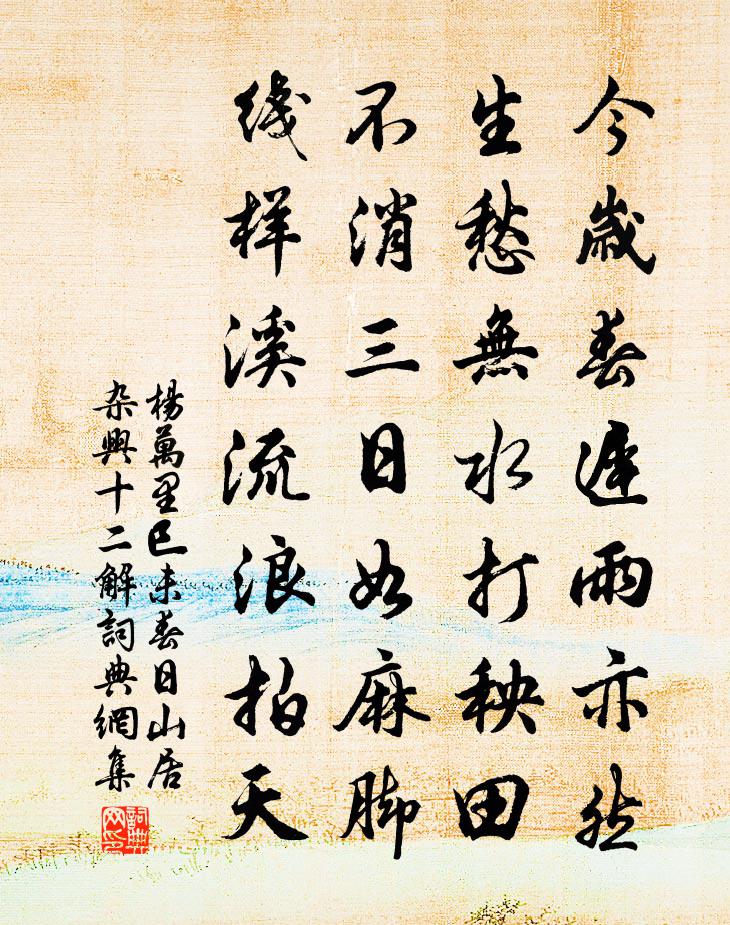 今歲春遲雨亦然
生愁無水打秧田
不消三日如麻腳
綫樣溪流浪拍天
楊萬里已未春日山居
杂興十二解詞典網集
詞典網印